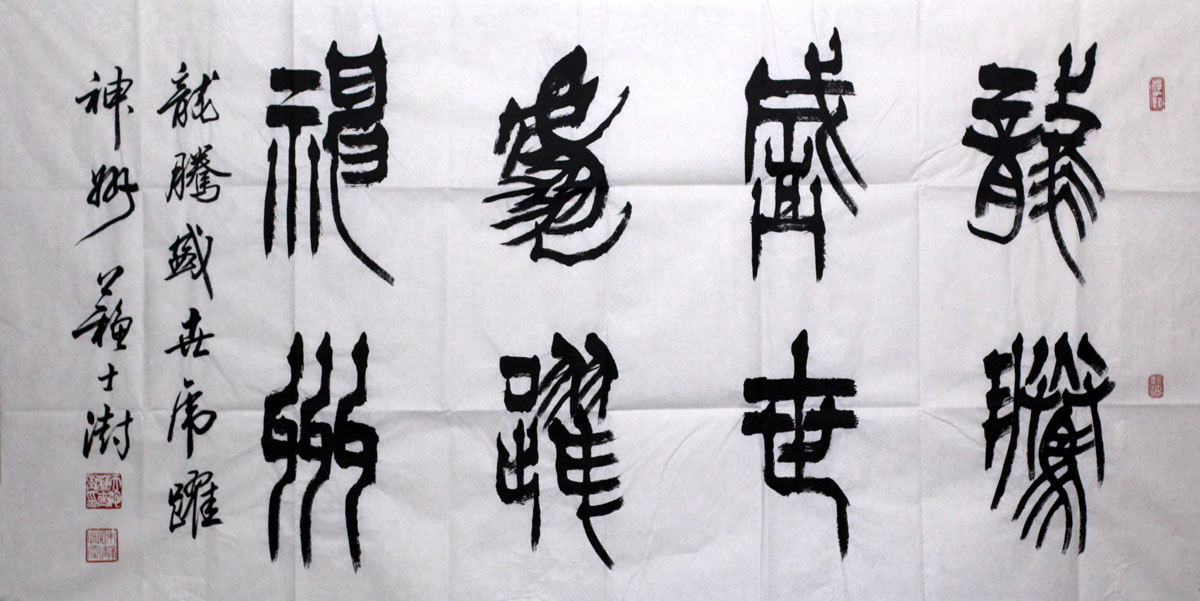 龍騰
盛世
虎躍
神州
龍騰盛世虎躍
神州 蘇士澍